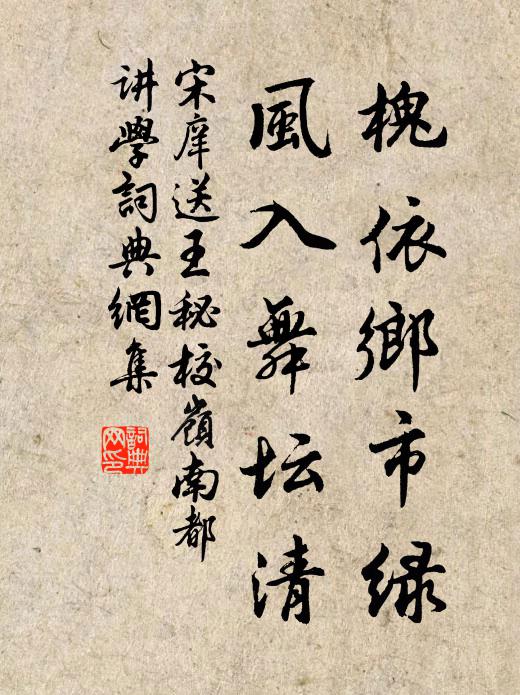 槐依鄉市緑
風入舞坛清
宋庠送王秘校嶺南都
讲學詞典網集
詞典
网印